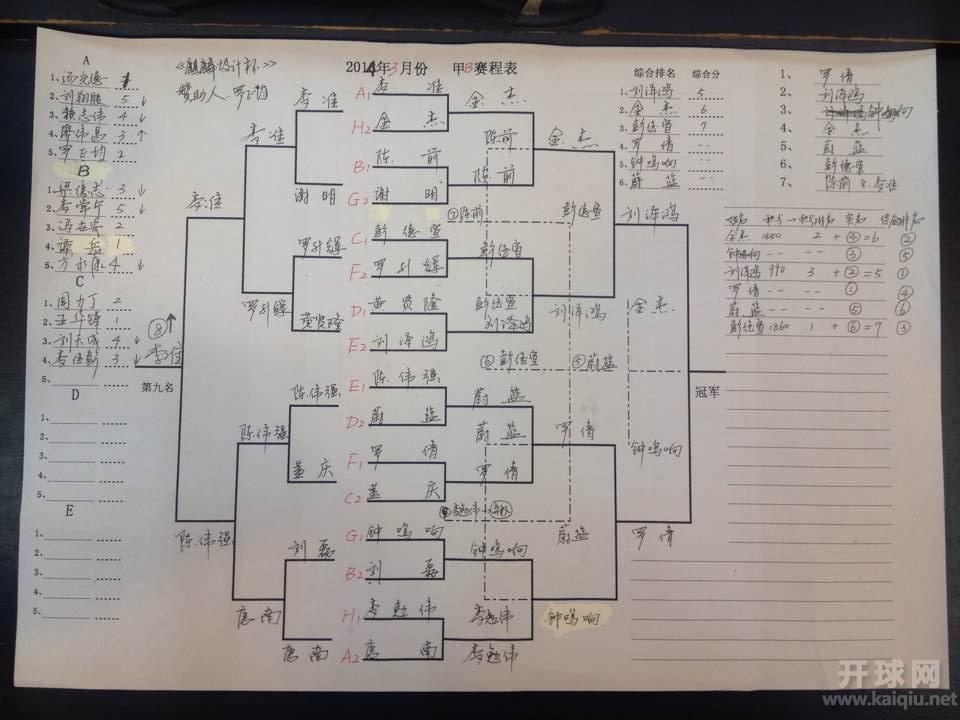 《麒麟设计杯》
2014年3月份 甲B赛程表
赞助人:
A
1、
2、刘翔胜 5 ↓
3、赖志伟 4 ↓
4、廖伟昌 3 ↑
5、罗 2
B
1、梁德志 3 ↓
2、李常宁 5 ↓
3、冯 2
4、谭岳 1
5、方 4 ↓
C
1、周力丁 2
2、王华锋 1
3、刘天成 4 ↓
4、李任彭 3 ↓
5、
D
1、
2、
3、
4、
5、
E
1、
2、
3、
4、
5、
第九名
⑧
李准
李准
陈伟强
李准
罗升辉
陈伟强
唐南
李准
谢明
罗升辉
黄贤隆
陈伟强
董庆
刘磊
唐南
A1 李准
H2 金杰
B1 陈前
G2 谢明
C1 彭德宣
F2 罗升辉
D1 黄贤隆
E2 刘泽鸿
E1 陈伟强
D2 蔚蓝
F1 罗倩
C2 董庆
G1 钟鸣响
B2 刘磊
H1 李勉伟
A2 唐南
金杰
陈前
陈前
⑦陈前
彭德宣
彭德宣
刘泽鸿
彭德宣
蔚蓝
蔚蓝
罗倩
李勉伟
钟鸣响
李勉伟
李勉伟
金杰
彭德宣
刘泽鸿
⑤蔚蓝
罗倩
蔚蓝
钟鸣响
刘泽鸿
金杰
钟鸣响
罗倩
冠军
综合排名 综合分
1、刘泽鸿 5
2、金杰 6
3、彭德宣 7
4、罗倩
5、钟鸣响
6、蔚蓝
1、罗倩
2、刘泽鸿
3、钟鸣响
4、金杰
5、蔚蓝
6、彭德宣
7、陈前 8.李准
姓名 积分→积分排名 实名 综合排名
金杰 1350 2 + ④=6 ②
钟鸣响 -- -- ③ ⑤
刘泽鸿 990 3 + ②=5 ①
罗倩 -- -- ① ④
蔚蓝 -- -- ⑤ ⑥
彭德宣 1860 1 + ⑥=7 ③
开球网
www.kaiqiu.net